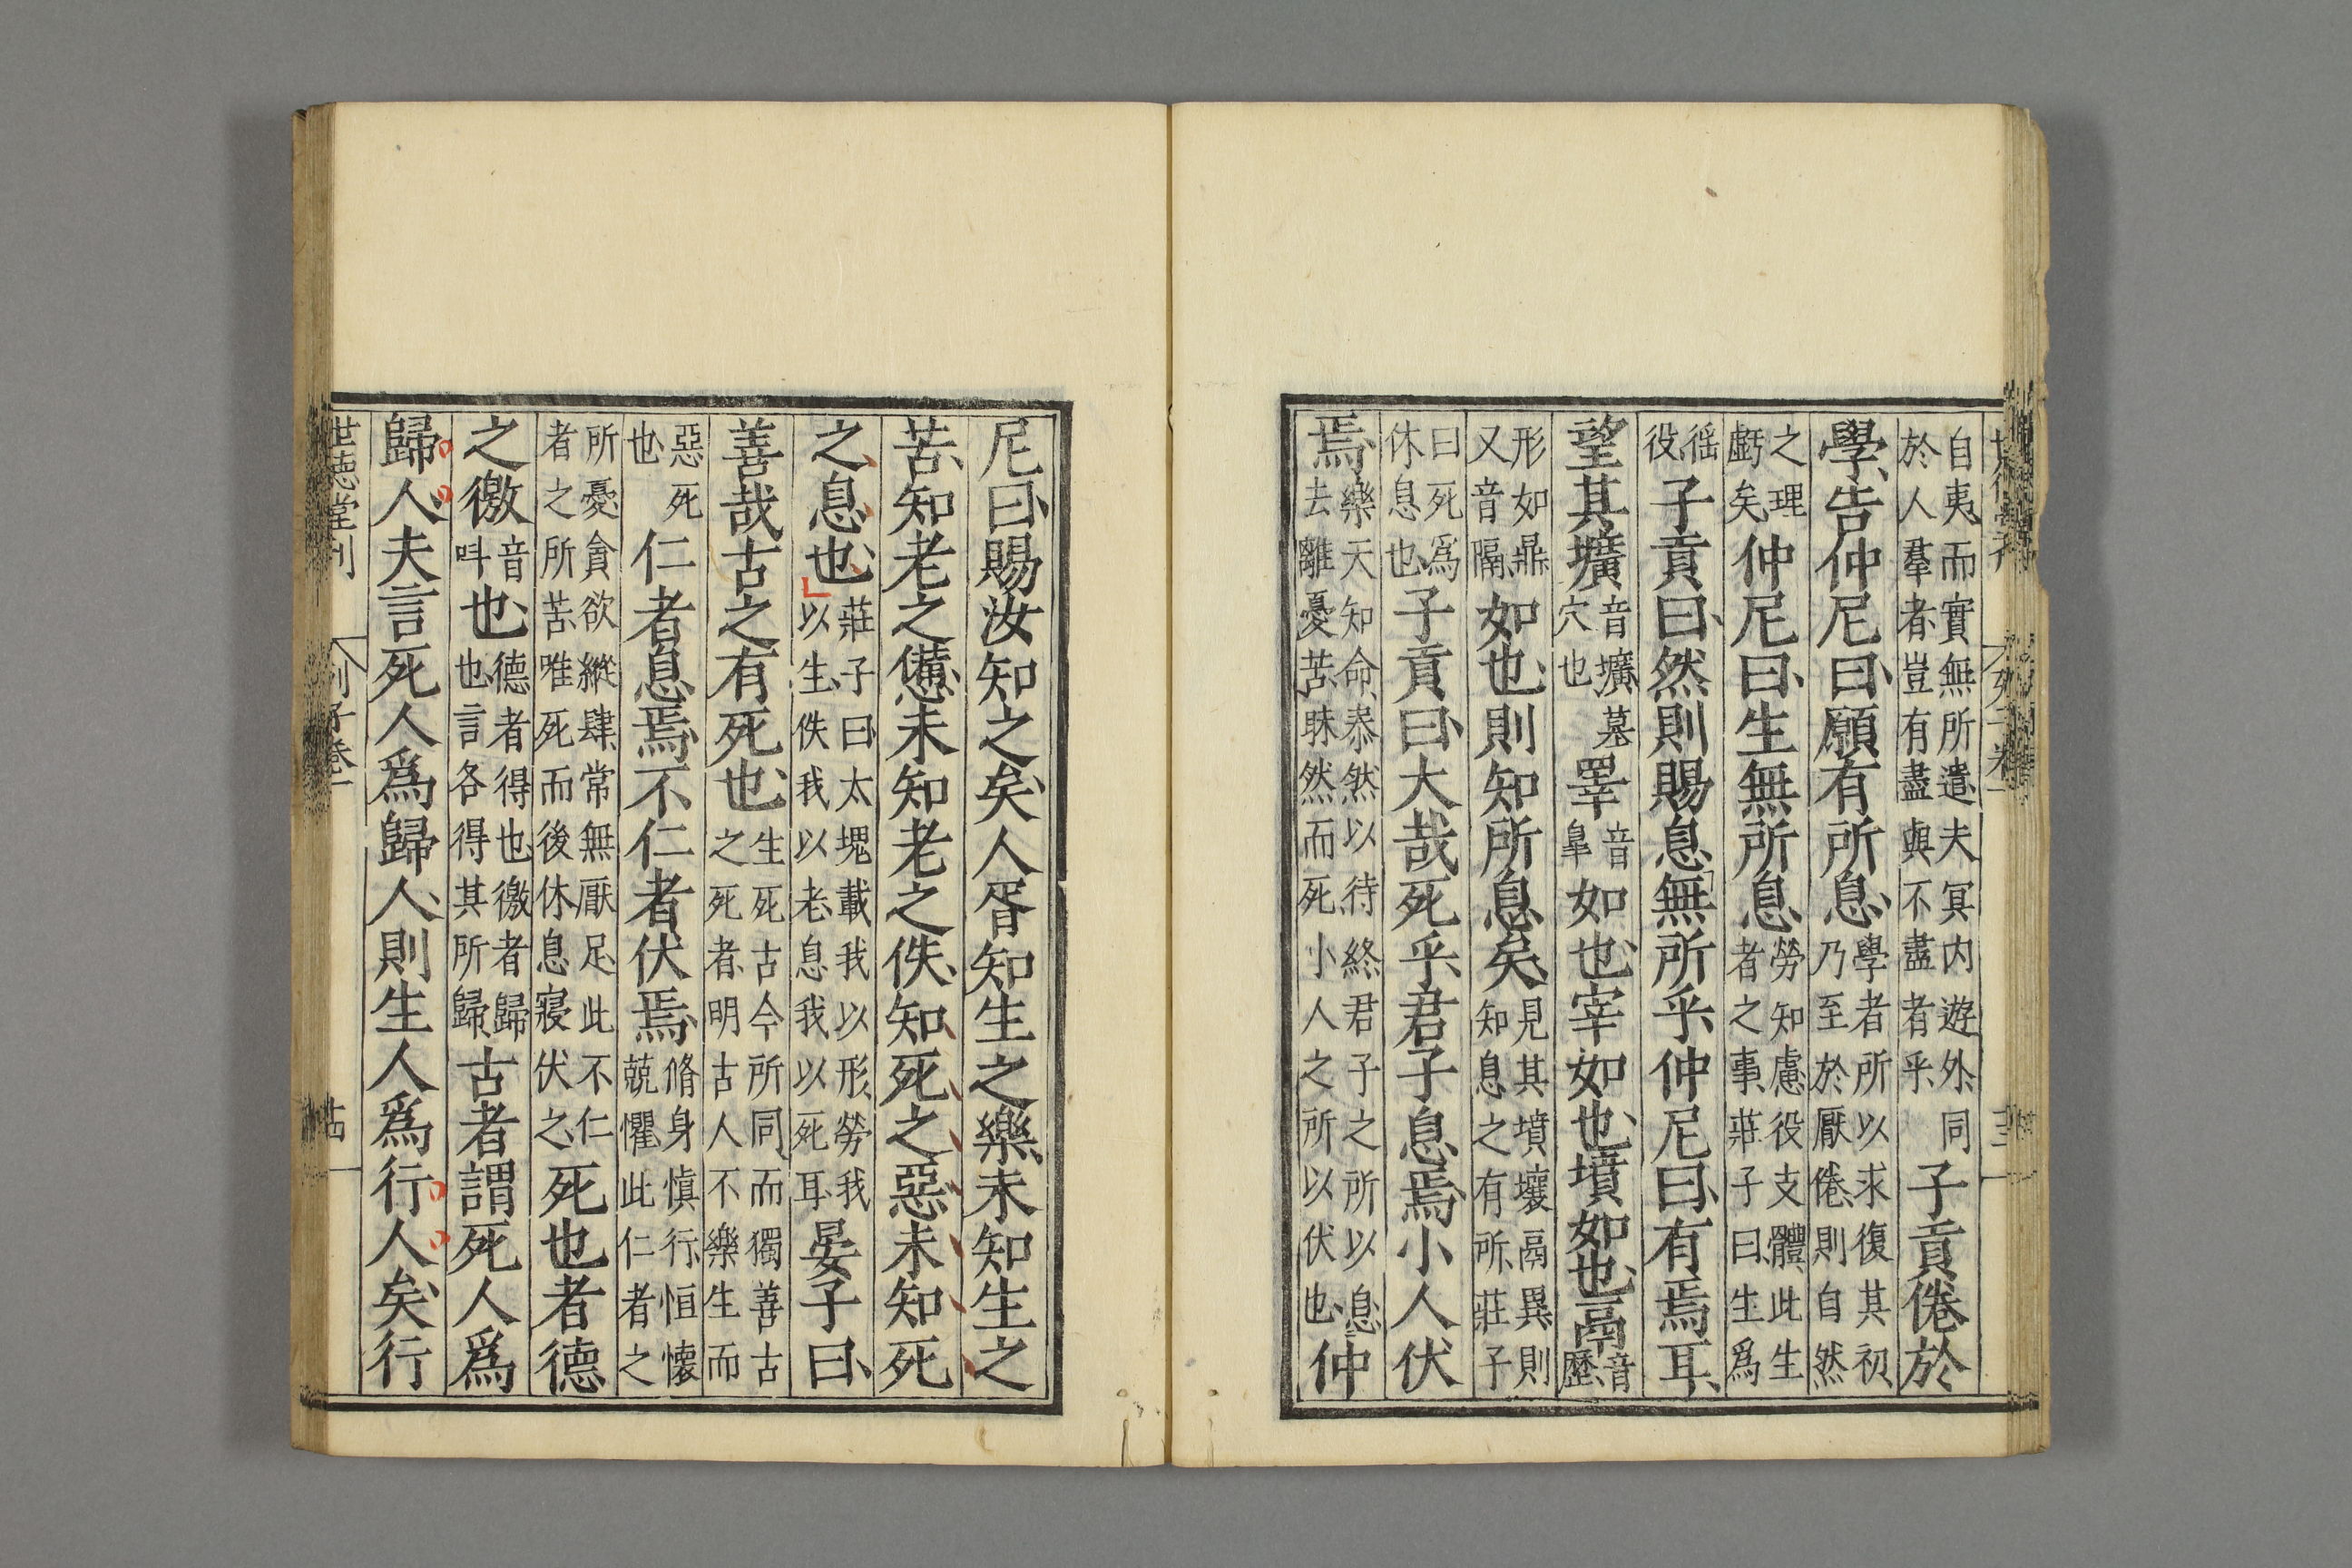 自夷而實無所遣夫冥内遊外同於人羣者豈有盡與不盡者乎子貢倦於
學告仲尼曰願有所息學者所以求復其初乃至於厭倦則自然
之理虧矣仲尼曰生無所息勞知慮役支體此生者之事莊子曰生爲
徭役子貢曰然則賜息無所乎仲尼曰有焉耳
望其壙音壙墓穴也睪音臯如也宰如也墳如也鬲音歷
形如鼎又音隔如也則知所息矣見其墳壤鬲異則知息之有所莊子
曰死爲休息也子貢曰大哉死乎君子息焉小人伏
焉樂天知命泰然以待終君子之所以息去離憂苦昧然而死小人之所以伏也仲
尼曰賜汝知之矣人胥知生之樂未知生之
苦知老之憊未知老之佚知死之惡未知死
之息也莊子曰太塊載我以形勞我以生佚我以老息我以死耳晏子曰
善哉古之有死也生死古今所同而獨善古之死者明古人不樂生而
惡死也仁者息焉不仁者伏焉脩身慎行恒懷兢懼此仁者之
所憂貪欲縱肆常無厭足此不仁者之所苦唯死而後休息寢伏之死也者德
之徼音叫也德者得也徼者歸也言各得其所歸古者謂死人爲
歸人夫言死人爲歸人則生人爲行人矣行
世德堂刊 列子卷一 十四